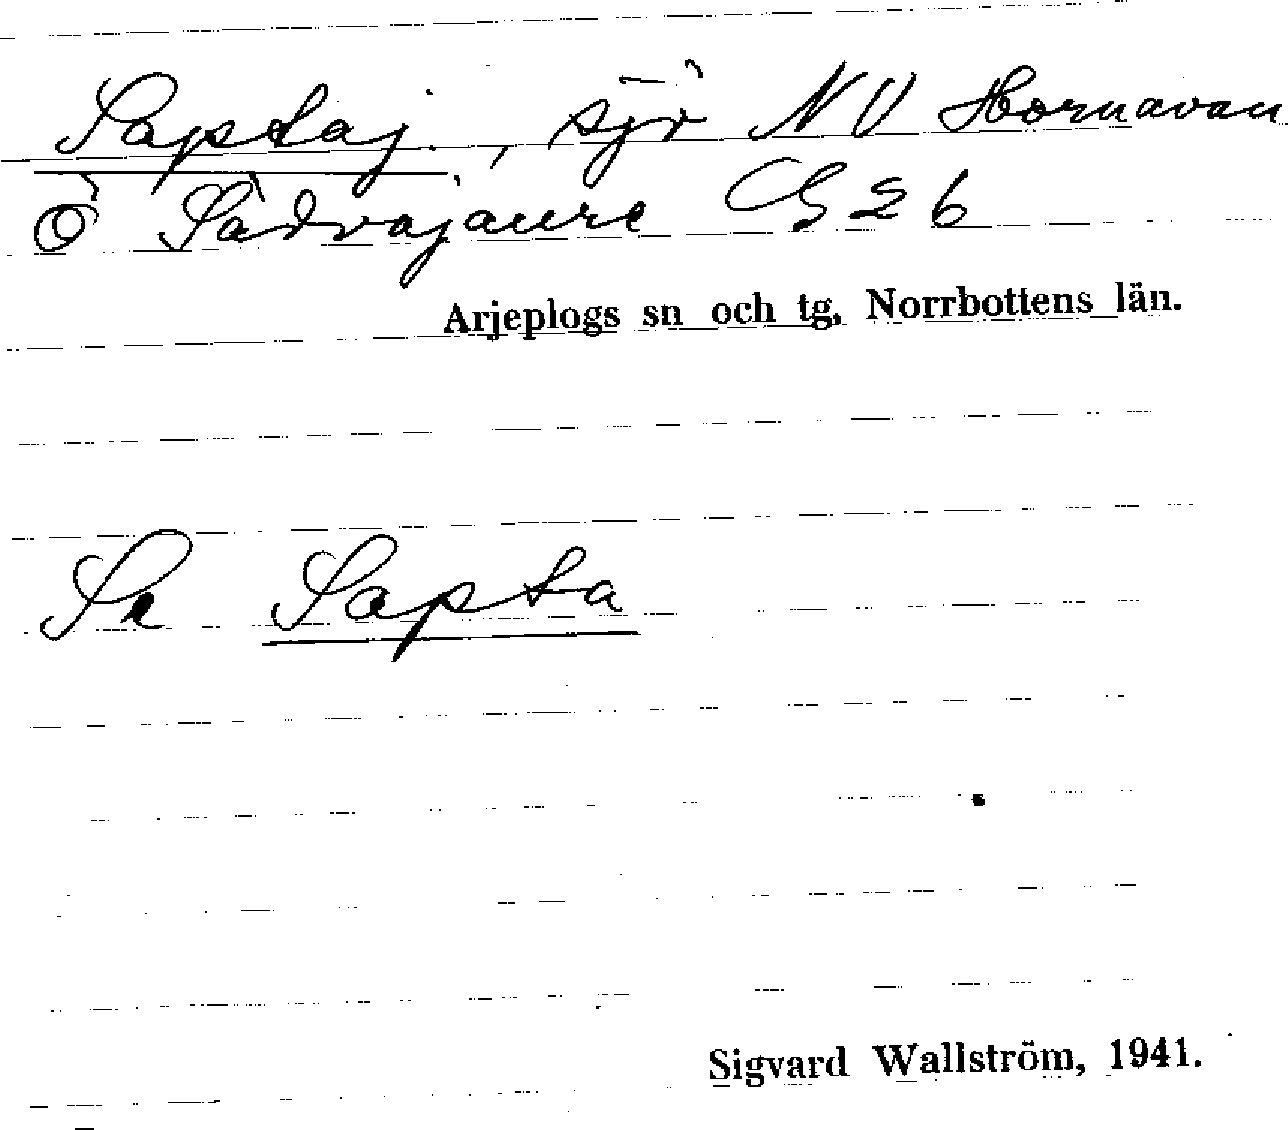 Saptaj, sjö NV Hornavan
Ö Sädvajaure G 26
Arjeplogs sn och tg, Norrbottens län.
Se Sapta
Sigvard Wallström, 1941.